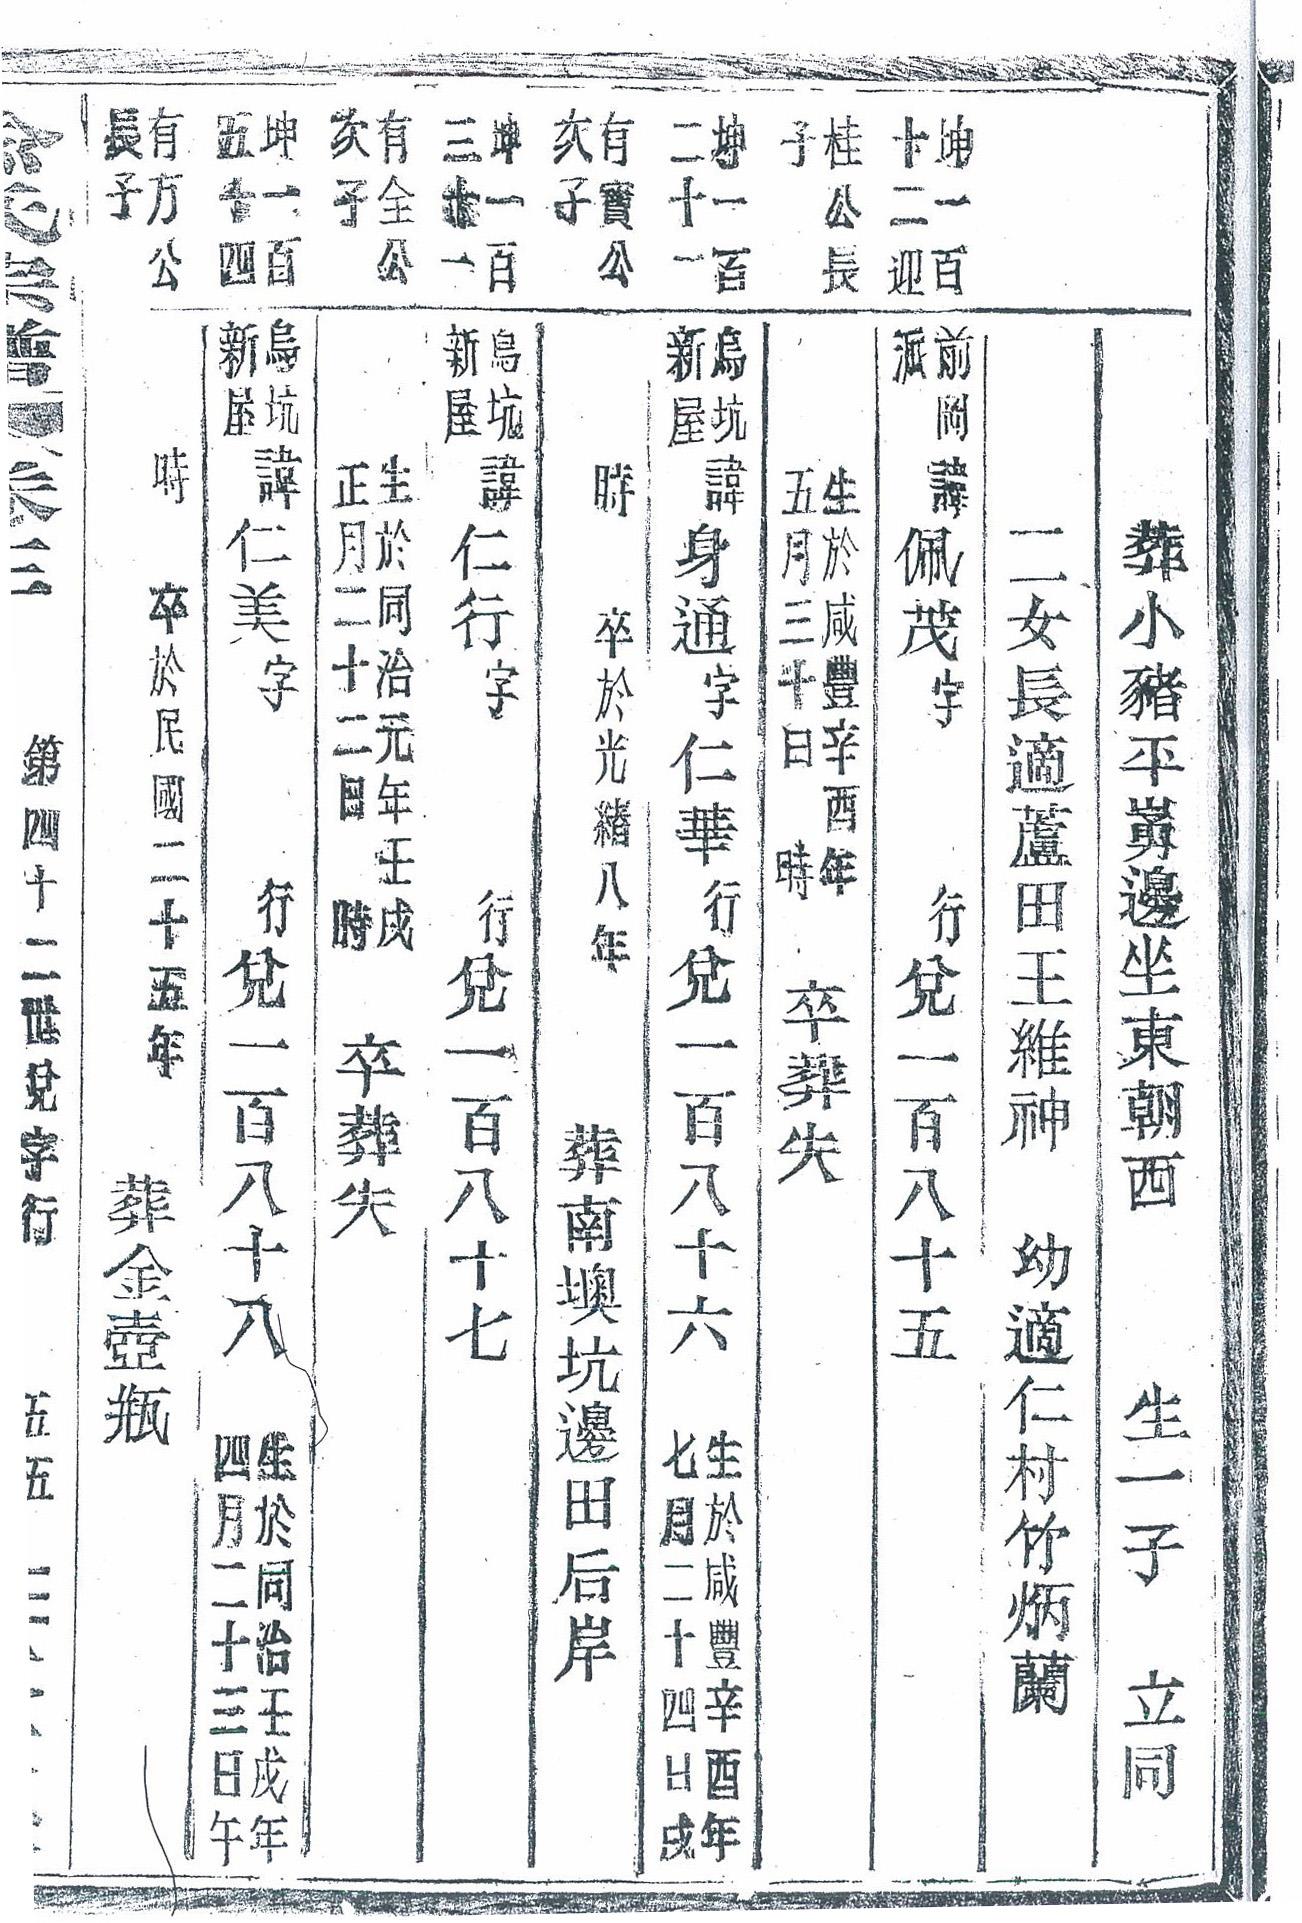 葬小豬平嵛邊坐東朝西 生一子 立同
二女長適蘆田王維神 幼適仁村竹炳蘭
坤一百
十二迎
前岡
派
諱佩茂字 行兌一百八十五
桂公長
子
生於咸豐辛酉年
五月三十日 時
卒葬失
坤一百
二十一
烏坑
新屋
諱身通字仁華行兌一百八十六
生於咸豐辛酉年
七月二十四日戌
有寶公
次子
時 卒於光緒八年 葬南墺坑邊田后岸
坤一百
三十一
烏坑
新屋
諱仁行字 行兌一百八十七
有全公
次子
生於同治元年壬戌
正月二十二日 時
卒葬失
坤一百
五十四
烏坑
新屋
諱仁美字 行兌一百八十八
生於同治壬戌年
四月二十三日午
有方公
長子
時 卒於民國二十五年 葬金壺瓶
宗譜 卷三 第四十二世兌字行 五五